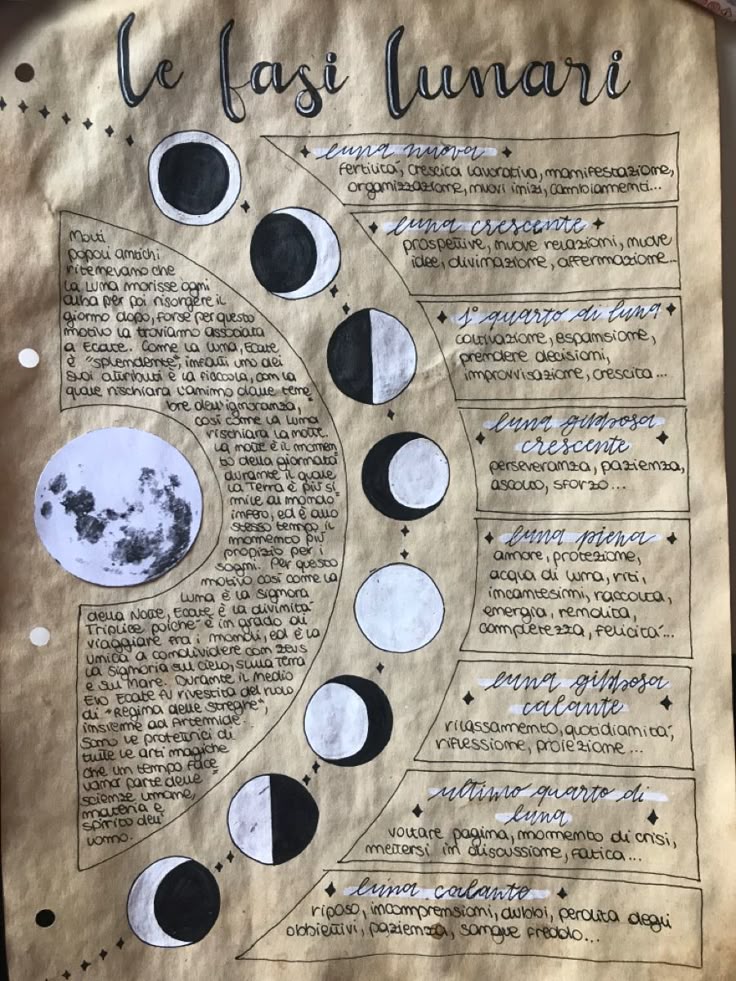 le fasi lunari
luna nuova
fertilità, crescita lavorativa, manifestazione,
organizzazione, nuovi inizi, cambiamenti...
luna crescente
prospettive, nuove relazioni, nuove
idee, divinazione, affermazione...
1° quarto di luna
coltivazione, espansione,
prendere decisioni,
improvvisazione, crescita...
luna gibbosa
crescente
perseveranza, pazienza,
ascolto, sforzo...
luna piena
amore, protezione,
acqua di luna, riti,
incantesimi, raccolta,
energia, rendita,
completezza, felicità...
luna gibbosa
calante
rilassamento, quotidianità,
riflessione, proiezione...
ultimo quarto di
luna
voltare pagina, momento di crisi,
mettersi in discussione, fatica...
luna calante
riposo, incomprensioni, dubbi, perdita degli
obbiettivi, pazienza, sangue freddo...
Molti
popoli antichi
ritenevano che
la Luna morisse ogni
alba per poi risorgere il
giorno dopo, forse per questo
motivo la troviamo associata
a Ecate. Come la luna, Ecate
è "splendente", infatti uno dei
suoi attributi è la fiaccola, con la
quale rischiara l'animo dalle tene
bre dell'ignoranza,
così come la Luna
rischiara la notte.
La notte è il momen
to della giornata
durante il quale
la Terra è più si
mile al mondo
infero, ed è allo
stesso tempo il
momento più
propizio per i
sogni. Per questo
motivo così come la
Luna è la signora
della Notte, Ecate è la divinità
Triplice poiché è in grado di
viaggiare fra i mondi, ed è la
unica a condividere con Zeus
la signoria sul cielo, sulla Terra
e sul Mare. Durante il Medio
Evo Ecate fu rivestita del ruolo
di "Regina delle Streghe",
insieme ad Artemide.
Sono le protettrici di
tutte le arti magiche
che un tempo face
vano parte delle
scienze umane,
materia e
spirito dell'
uomo.